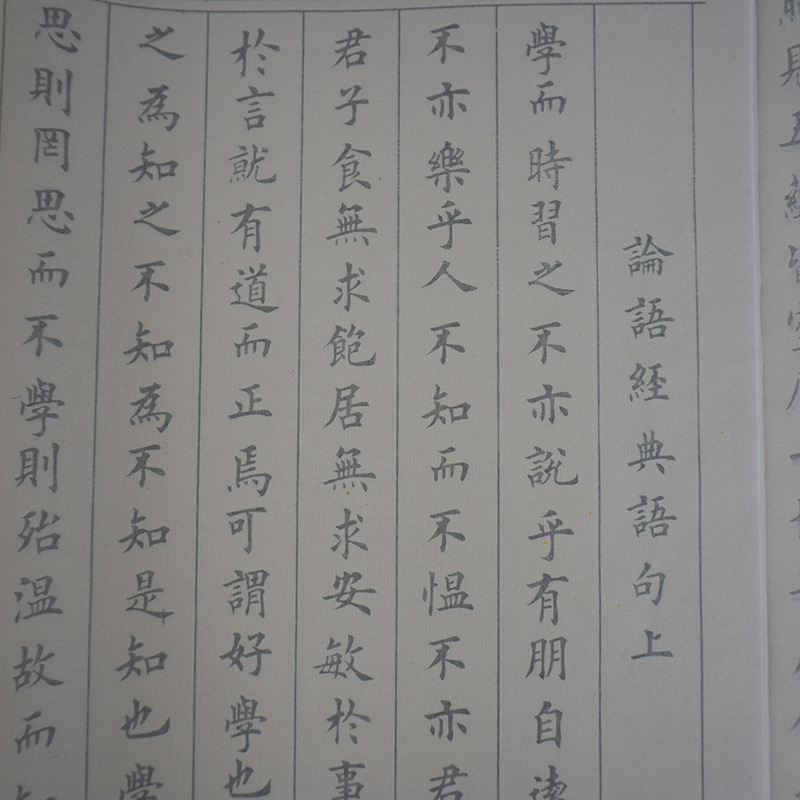 論語經典語句上
學而時習之不亦說乎有朋自遠
不亦樂乎人不知而不愠不亦君
君子食無求飽居無求安敏於事
於言就有道而正焉可謂好學也
之為知之不知為不知是知也學
思則罔思而不學則殆温故而知